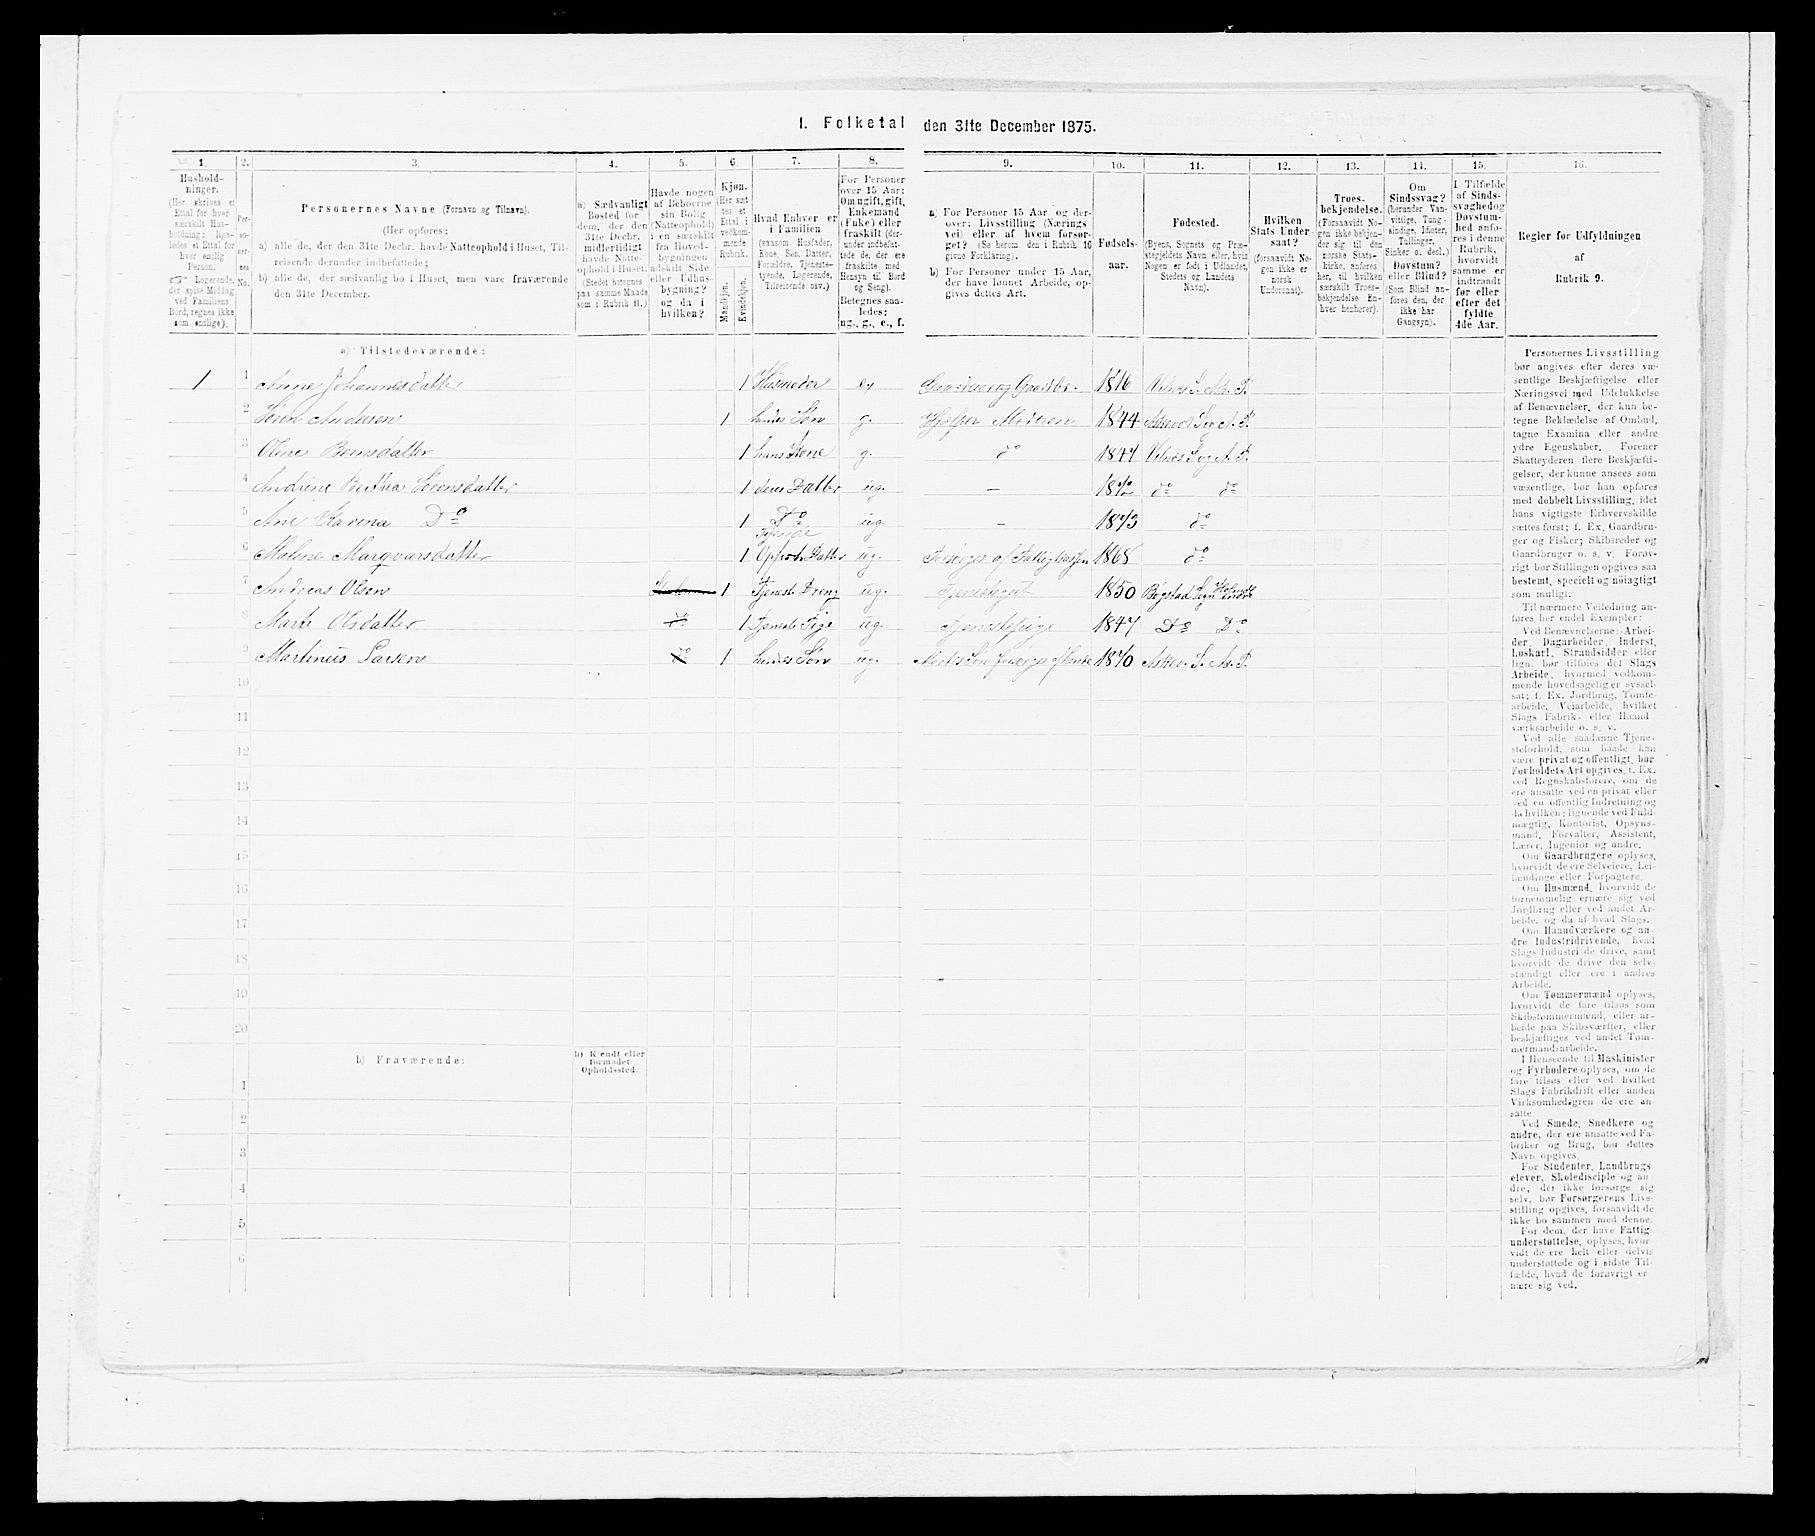 1. Folketal den 31te December 1875.
1. 2. 3. 4. 5. 6. 7. 8. 9. 10. 11. 12. 13. 14. 15. 16.
Husholdninger.
(Her skrives et
Ettal for hver
særskilt Hus-
holdning; lige-
ledes et Ettal for
hver enslig
Person.
Logerende,
der spise Middag
ved Familiens
Bord, regnes ikke
som enslige).
Per-
so-
ner-
nes
No.
Personernes Navne (Fornavn og Tilnavn).
(Her opføres:
a) alle de, der den 31te Decbr. havde Natteophold i Huset, Til-
reisende derunder indbefattede;
b) alle de, der sædvanlig bo i Huset, men vare fraværende
den 31te December.
a) Sædvanligt
Bosted for
dem, der den
31te Decbr.
midlertidigt
havde Natte-
ophold i Huset.
(Stedet betegnes
paa samme Maade
som i Rubrik 11.)
Havde nogen
af Beboerne
sin Bolig
(Natteophold)
i en særskilt
fra Hoved-
bygningen
adskilt Side-
eller Udhus-
bygning?
og da i
hvilken?
Kjøn.
(Her sæt-
tes et
Ettal i
vedkom-
mende
Rubrik.
Mandkjøn.
Kvindekjøn.
Hvad Enhver er
i Familien
(saasom Husfader,
Kone, Søn, Datter,
Forældre, Tjeneste-
tyende, Logerende,
Tilreisende osv.)
For Personer
over 15 Aar:
Om ugift, gift,
Enkemand
(Enke) eller
fraskilt (der-
under indbefat-
tede de, der ere
fraskilte med
Hensyn til Bord
og Seng).
Betegnes saa-
ledes:
ug., g., e., f.
a) For Personer 15 Aar og der-
over: Livsstilling (Nærings-
vei) eller af hvem forsør-
get? (Se herom den i Rubrik 16
givne Forklaring).
b) For Personer under 15 Aar,
der have lønnet Arbeide, op-
gives dettes Art.
Fødsels-
aar.
Fødested.
(Byens, Sognets og Præ-
stegjeldets Navn eller, hvis
Nogen er født i Udlandet,
Stedets og Landets
Navn).
Hvilken
Stats Under-
saat?
(forsaavidt No-
gen ikke er
norsk
Undersaat).
Troes-
bekjendelse.
(Forsaavidt No-
gen ikke bekjen-
der sig til den
norske Stats-
kirke, anføres
her, til hvilken
særskilt Troes-
bekjendelse En-
hver henhører).
Om
Sindssvag?
(herunder Van-
vittige, Tung-
sindige, Idioter,
Tullinger,
Sinker o. desl.)
Døvstum?
eller Blind?
(Som Blind an-
føres den, der
ikke har
Gangsyn).
I Tilfælde
af Sinds-
svaghed og
Døvstum-
hed anfø-
res i denne
Rubrik,
hvorvidt
samme er
indtraadt
før eller
efter det
fyldte
4de Aar.
Regler for Udfyldningen
af
Rubrik 9.
a) Tilstedeværende:
1 1 Anne Johannesdatter 1 Husmoder e, Gaardbr. 1816 S. As. P.
2 Søren Andersen 1 hendes Søn g. Hjelper Moderen 1844 Askvold Sog A. P.
3 Oline Berntsdatter 1 hans Kone g. do 1847 Vilnes S og A. P.
4 Andrine Berthea Sørensdatter 1 deres Datter ug. — 1872 do do
5 Ane Karena Do 1 Do ug. — 1873 do
Tyende
6 Malene Marqvarsdatter 1 Opfost. Datter ug. Forsørges af Fattigkassen 1868 do
7 Andreas Olsen 1 Tjeneste Dreng ug. Tjenestegut 1850 Bøgstad Sogn
8 Marte Olsdatter do 1 Tjeneste Pige ug. Tjenestepige 1847 Do Do
9 Martinus Larsen do 1 hendes Søn ug. Martes Søn forsørges af hende 1870 Askvo. S. As. P.
10
11
12
13
14
15
16
17
18
19
20
b) Fraværende:
b) Kjendt eller
formodet
Opholdssted.
1
2
3
4
5
6
Personernes Livsstilling
bør angives efter deres væ-
sentlige Beskjæftigelse eller
Næringsvei med Udelukkelse
af Benævnelser, der kun be-
tegne Beklædelse af Ombud,
tagne Examina eller andre
ydre Egenskaber. Forener
Skatteyderen flere Beskjæfti-
gelser, der kunne ansees som
væsentlige, bør han opføres
med dobbelt Livsstilling, idet
hans vigtigste Erhvervskilde
sættes først; f. Ex. Gaardbru-
ger og Fisker; Skibsreder og
Gaardbruger o. s. v. Forøv-
rigt bør Stillingen opgives saa
bestemt, specielt og nøiagtigt
som muligt.
Til nærmere Veiledning an-
føres her endel Exempler:
Ved Benævnelserne: Arbei-
der, Dagarbeider, Inderst,
Løskarl, Strandsidder eller
lign. bør tilføies det Slags
Arbeide, hvormed vedkom-
mende hovedsagelig er syssel-
sat; f. Ex. Jordbrug, Tomte-
arbeide, Veiarbeide, hvilket
Slags Fabrik- eller Haand-
værksarbeide o. s. v.
Ved alle saadanne Tjene-
steforhold, som baade kan
være privat og offentligt, bør
Forholdets Art opgives, f. Ex.
ved Regnskabsførere, om de
ere ansatte ved en privat eller
ved en offentlig Indretning og
da hvilken; lignende ved Fuld-
mægtig, Kontorist, Opsyns-
mand, Forvalter, Assistent,
Lærer, Ingeniør og andre.
Om Gaardbrugere oplyses,
hvorvidt de ere Selveiere, Lei-
lændinge eller Forpagtere.
Om Husmænd, hvorvidt de
fornemmelig ernære sig ved
Jordbrug eller ved andet Ar-
beide, og da af hvad Slags.
Om Haandværkere og an-
dre Industridrivende, hvad
Slags Industri de drive, samt
hvorvidt de drive den selv-
stændigt eller ere i andres
Arbeide.
Om Tømmermænd oplyses,
hvorvidt de fare tilsøs som
Skibstømmermænd, eller ar-
beide paa Skibsværfter, eller
beskjæftiges ved andet Tøm-
mermandsarbeide.
I Henseende til Maskinister
og Fyrbødere oplyses, om de
fare tilsøs eller ved hvilket
Slags Fabrikdrift eller anden
Virksomhedsgren de ere an-
satte.
Ved Smede, Snedkere og
andre, der ere ansatte ved Fa-
briker og Brug, bør dettes
Navn opgives.
For Studenter, Landbrugs-
elever, Skoledisciple og an-
dre, der ikke forsørge sig
selv, bør Forsørgerens Livs-
stilling opgives, forsaavidt de
ikke bo sammen med denne.
For dem, der have Fattig-
understøttelse, oplyses, hvor-
vidt de ere helt eller delvis
understøttede og i sidste Til-
fælde, hvad de forøvrigt er-
nære sig ved.